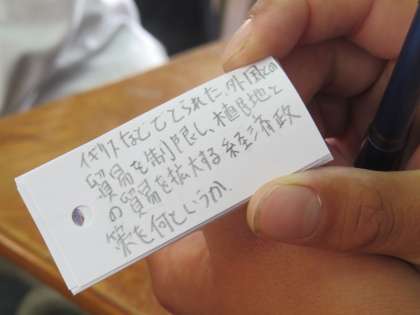 イギリスなどでとられた、外国との
貿易を制限し、植民地と
の貿易を拡大する経済政
策を何というか